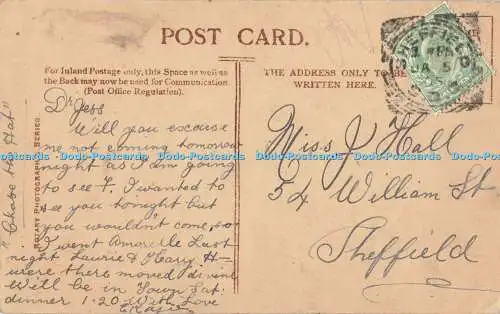 POST CARD.
For Inland Postage only, this Space as well as
the Back may now be used for Communication
(Post Office Regulation).
THE ADDRESS ONLY TO BE
WRITTEN HERE.
SHEFFIELD
Dr Jess
Will you excuse
me not coming tomorrow
night as I am going
to see F. I wanted to
see you tonight but
you wouldn't come, so
I went Last
night Laurie & Harry H
were there moved
Will be in Town Sat.
dinner 1-20 With Love
"Chase me Hat"
ROTARY PHOTOGRAPHIC SERIES
Miss J Hall
54 William St
Sheffield
Dodo-Postcards Dodo-Postcards Dodo-Postcards Dodo-Postcards Dodo-Postcards
Dodo-Postcards Dodo-Postcards Dodo-Postcards Dodo-Postcards Dodo-Postcards